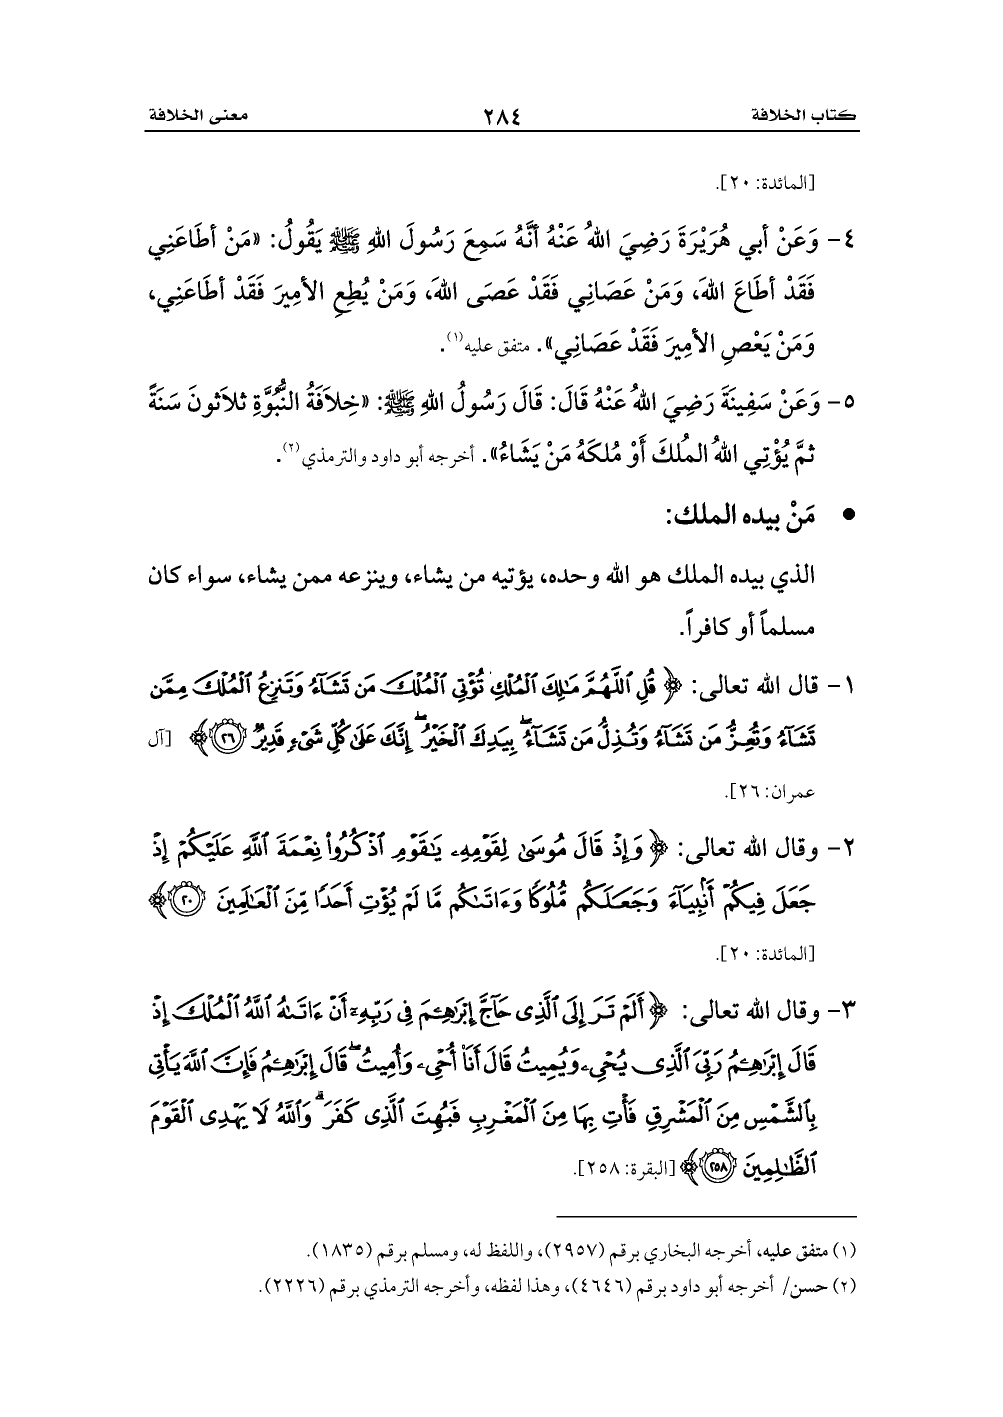 كتاب الخلافة ٢٨٤ معنى الخلافة
[المائدة: ٢٠].
٤- وَعَنْ أبي هُرَيْرَةَ رَضِيَ اللهُ عَنْهُ أنَّهُ سَمِعَ رَسُولَ اللهِ ﷺ يَقُولُ: «مَنْ أطَاعَنِي
فَقَدْ أطَاعَ اللهَ، وَمَنْ عَصَانِي فَقَدْ عَصَى اللهَ، وَمَنْ يُطِعِ الأمِيرَ فَقَدْ أطَاعَنِي،
وَمَنْ يَعْصِ الأمِيرَ فَقَدْ عَصَانِي». متفق عليه(١).
٥- وَعَنْ سَفِينَةَ رَضِيَ اللهُ عَنْهُ قَالَ: قَالَ رَسُولُ اللهِ ﷺ: «خِلاَفَةُ النُّبُوَّةِ ثلاَثونَ سَنَةً
ثمَّ يُؤْتِي اللهُ المُلكَ أَوْ مُلكَهُ مَنْ يَشَاءُ». أخرجه أبو داود والترمذي(٢).
● مَنْ بيده الملك:
الذي بيده الملك هو الله وحده، يؤتيه من يشاء، وينزعه ممن يشاء، سواء كان
مسلماً أو كافراً.
١- قال الله تعالى: ﴿ قُلِ ٱللَّهُمَّ مَٰلِكَ ٱلْمُلْكِ تُؤْتِى ٱلْمُلْكَ مَن تَشَآءُ وَتَنزِعُ ٱلْمُلْكَ مِمَّن
تَشَآءُ وَتُعِزُّ مَن تَشَآءُ وَتُذِلُّ مَن تَشَآءُ ۖ بِيَدِكَ ٱلْخَيْرُ ۖ إِنَّكَ عَلَىٰ كُلِّ شَىْءٍ قَدِيرٌ ٢٦ ﴾ [آل
عمران: ٢٦].
٢- وقال الله تعالى: ﴿ وَإِذْ قَالَ مُوسَىٰ لِقَوْمِهِۦ يَٰقَوْمِ ٱذْكُرُوا۟ نِعْمَةَ ٱللَّهِ عَلَيْكُمْ إِذْ
جَعَلَ فِيكُمْ أَنۢبِيَآءَ وَجَعَلَكُم مُّلُوكًا وَءَاتَىٰكُم مَّا لَمْ يُؤْتِ أَحَدًا مِّنَ ٱلْعَٰلَمِينَ ٢٠ ﴾
[المائدة: ٢٠].
٣- وقال الله تعالى: ﴿ أَلَمْ تَرَ إِلَى ٱلَّذِى حَآجَّ إِبْرَٰهِۦمَ فِى رَبِّهِۦٓ أَنْ ءَاتَىٰهُ ٱللَّهُ ٱلْمُلْكَ إِذْ
قَالَ إِبْرَٰهِۦمُ رَبِّىَ ٱلَّذِى يُحْىِۦ وَيُمِيتُ قَالَ أَنَا۠ أُحْىِۦ وَأُمِيتُ ۖ قَالَ إِبْرَٰهِۦمُ فَإِنَّ ٱللَّهَ يَأْتِى
بِٱلشَّمْسِ مِنَ ٱلْمَشْرِقِ فَأْتِ بِهَا مِنَ ٱلْمَغْرِبِ فَبُهِتَ ٱلَّذِى كَفَرَ ۗ وَٱللَّهُ لَا يَهْدِى ٱلْقَوْمَ
ٱلظَّٰلِمِينَ ٢٥٨ ﴾ [البقرة: ٢٥٨].
(١) متفق عليه، أخرجه البخاري برقم (٢٩٥٧)، واللفظ له، ومسلم برقم (١٨٣٥).
(٢) حسن/ أخرجه أبو داود برقم (٤٦٤٦)، وهذا لفظه، وأخرجه الترمذي برقم (٢٢٢٦).